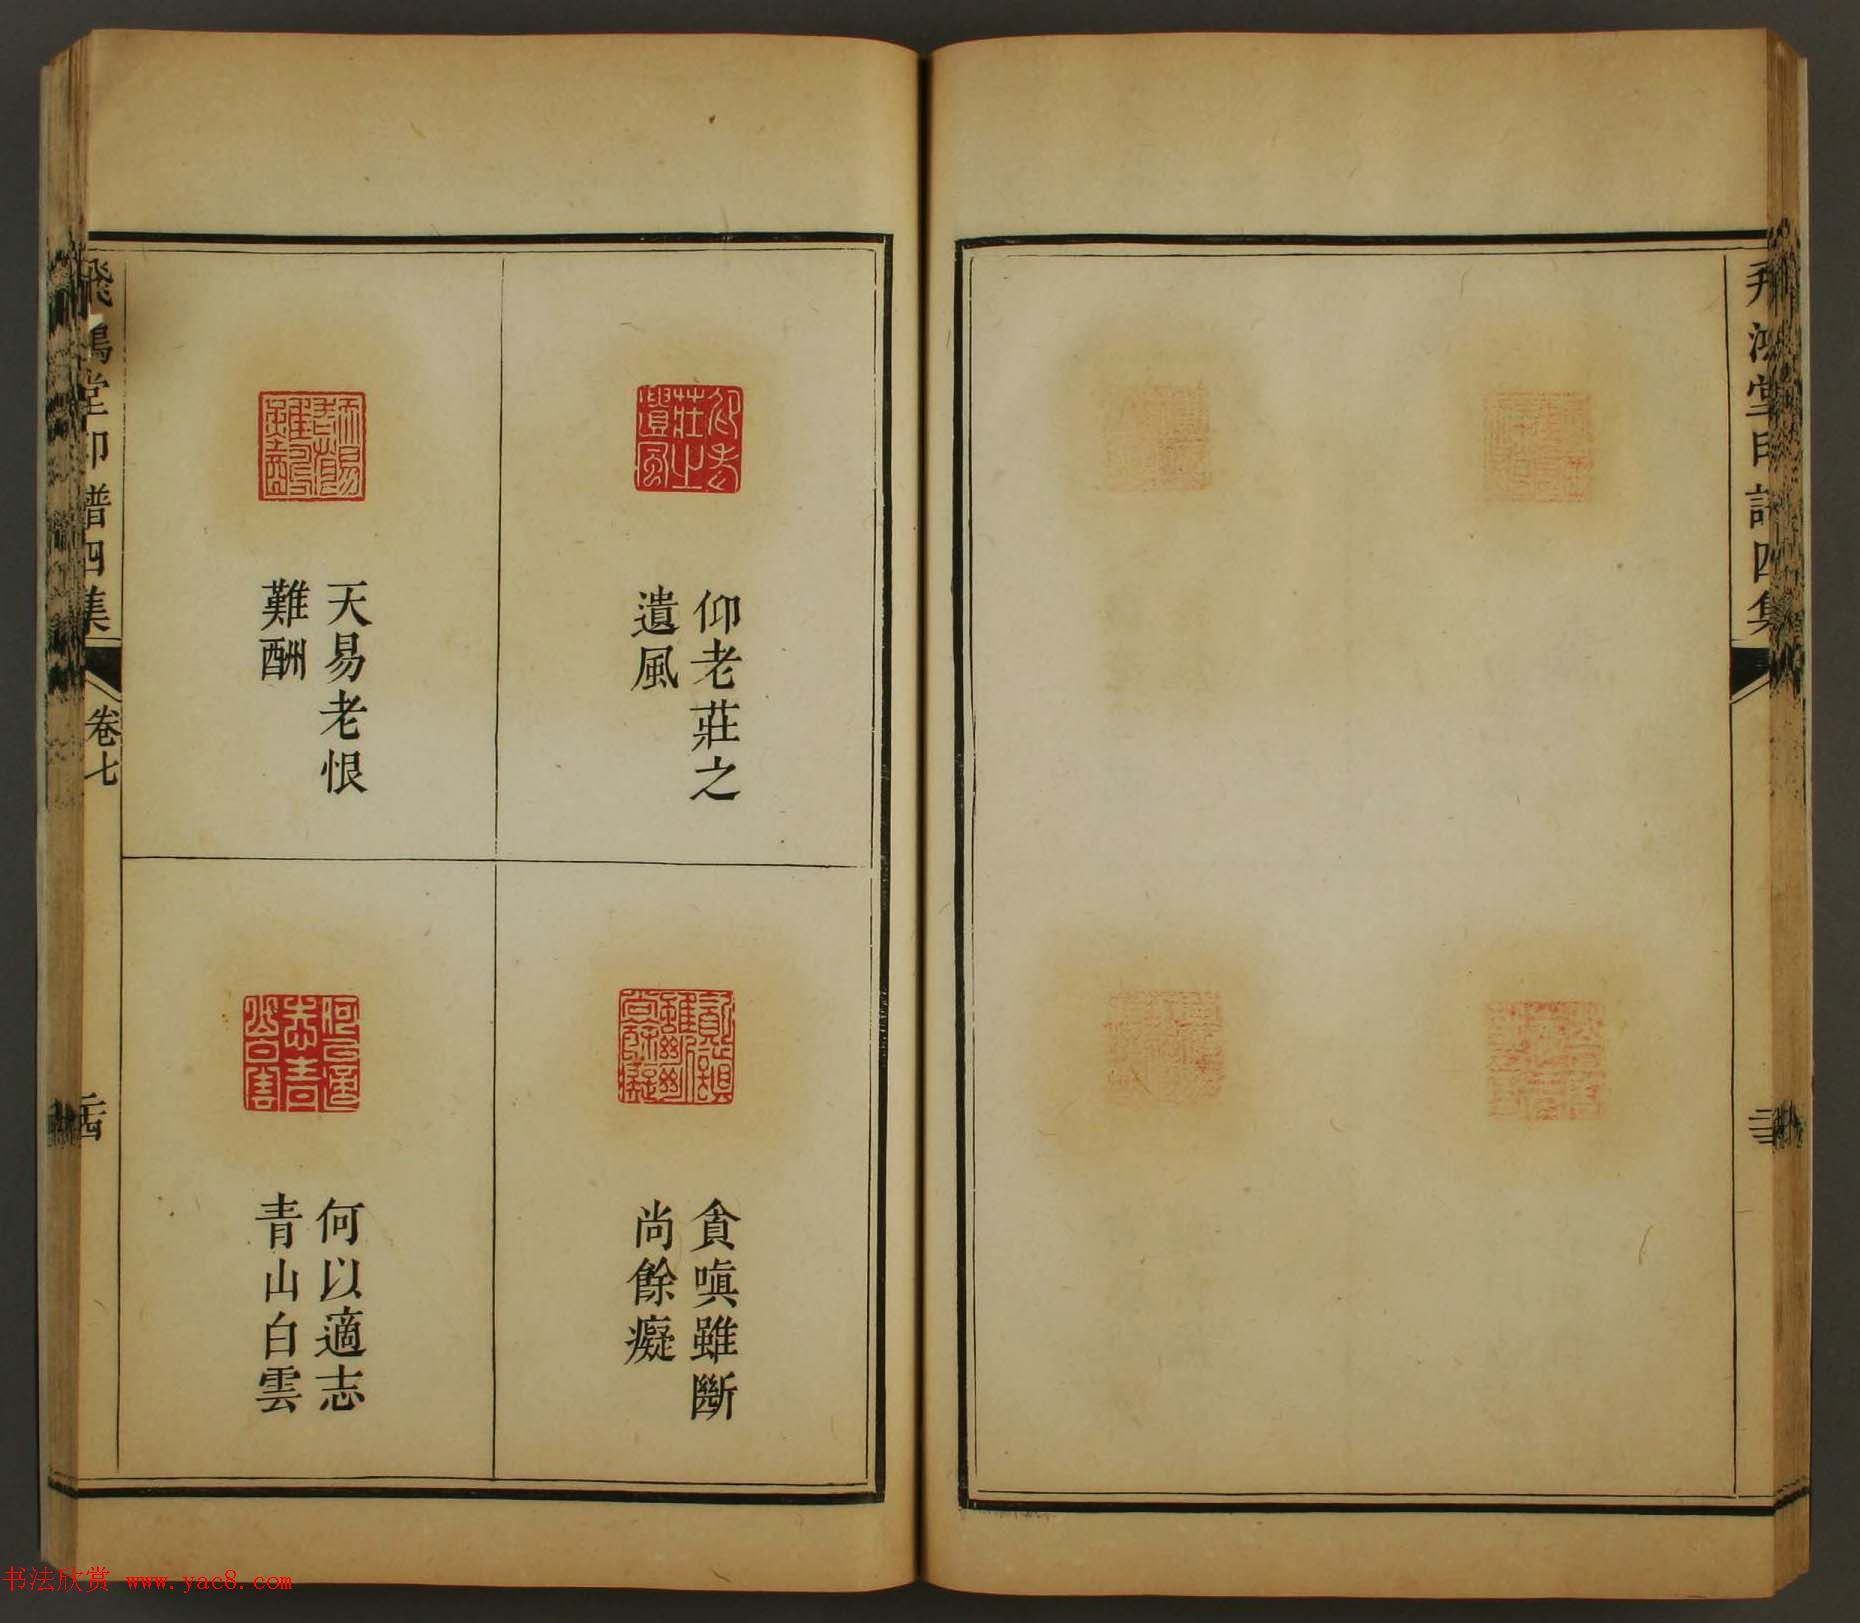 飛鴻堂印譜四集
卷七
仰老莊之
遺風
天易老恨
難酬
貪嗔雖斷
尚餘癡
何以適志
青山白雲
书法欣赏 www.yac8.com